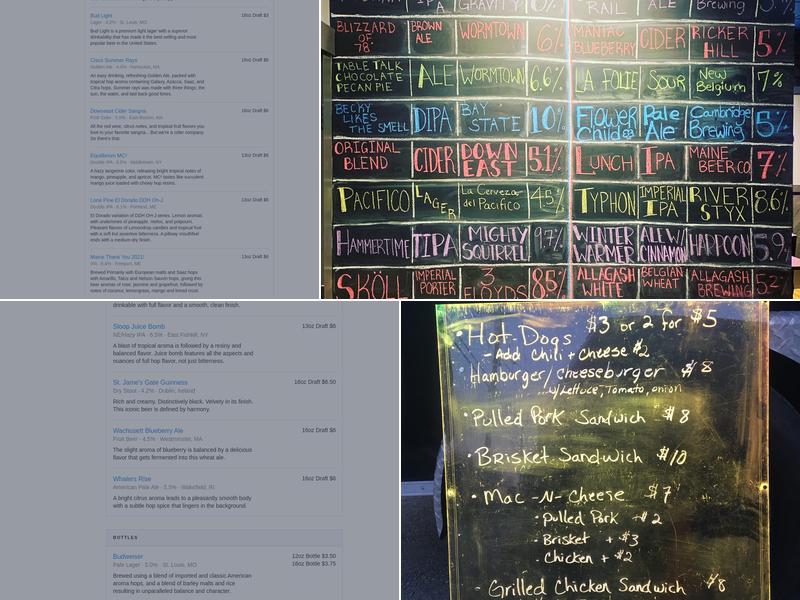 Bud Light
16oz Draft $3
Lager · 4.2% · St. Louis, MO
Bud Light is a premium light lager with a superior
drinkability that has made it the best-selling and most
popular beer in the United States.
Cisco Summer Rays
16oz Draft $6
Nantucket, MA
An easy drinking, refreshing Golden Ale, packed with
tropical hop aroma containing Galaxy, Azacca, Saaz, and
Citra hops. Summer Rays was made with three things; the
sun, the water, and laid back good times.
Downeast Cider Sangria
16oz Draft $6
Fruit Cider · East Boston, MA
All the red wine, citrus notes, and tropical fruit flavors you
love in your favorite sangria... But we're a cider company.
So there's that.
Equilibrium MC²
13oz Draft $8
Double IPA · 8.0% · Middletown, NY
A hazy tangerine color, releasing bright tropical notes of
mango, pineapple, and apricot. MC² tastes like succulent
mango juice layered with chewy hop resins.
Lone Pine El Dorado DDH Oh-J
13oz Draft $8
Double IPA · 8.1% · Portland, ME
El Dorado variation of DDH OH-J series. Lemon aromas
with undertones of pineapple, melon, and potpourri.
Pleasant flavors of Lemondrop candies and tropical fruit
with a soft but assertive bitterness. A pillowy mouthfeel
ends with a medium-dry finish.
Maine Thank You 2021!
13oz Draft $8
Freeport, ME
Brewed Primarily with European malts and Saaz hops
with Amarillo, Talus and Nelson Sauvin hops, giving this
beer aromas of rose, jasmine and grapefruit, followed by
notes of coconut, lemongrass, mango and bread crust.
IPA GRAVITY RAIL ALE Brewing
BLIZZARD OF '78' BROWN ALE WORMTOWN 6% MANIAC BLUEBERRY CIDER RICKER HILL 5%
TABLE TALK CHOCOLATE PECAN PIE ALE WORMTOWN 6.6% LA FOLIE SOUR New Belgium 7%
BECKY LIKES THE SMELL DIPA BAY STATE 10% Flower Child Pale Ale Cambridge Brewing 5%
ORIGINAL BLEND CIDER DOWN EAST 5.1% LUNCH IPA MAINE BEER CO 7%
PACIFICO LAGER La Cerveza del Pacifico 4.5% TYPHON IMPERIAL IPA RIVER STYX 8.6%
HAMMERTIME TIPA MIGHTY SQUIRREL 9.7% WINTER WARMER ALE W/ CINNAMON HARPOON 5.9%
SKÖLL IMPERIAL PORTER 3 FLOYDS 8.5% ALLAGASH WHITE BELGIAN WHEAT ALLAGASH BREWING 5.2%
drinkable with full flavor and a smooth, clean finish.
Sloop Juice Bomb
13oz Draft $6
NE/Hazy IPA · 6.5% · East Fishkill, NY
A blast of tropical aroma is followed by a resiny and
balanced flavor. Juice bomb features all the aspects and
nuances of full hop flavor, not just bitterness.
St. Jame's Gate Guinness
16oz Draft $6.50
Dry Stout · 4.2% · Dublin, Ireland
Rich and creamy. Distinctively black. Velvety in its finish.
This iconic beer is defined by harmony.
Wachusett Blueberry Ale
16oz Draft $6
Fruit Beer · 4.5% · Westminster, MA
The slight aroma of blueberry is balanced by a delicious
flavor that gets fermented into this wheat ale.
Whalers Rise
16oz Draft $6
American Pale Ale · 5.5% · Wakefield, RI
A bright citrus aroma leads to a pleasantly smooth body
with a subtle hop spice that lingers in the background.
BOTTLES
Budweiser
12oz Bottle $3.50
Pale Lager · 5.0% · St. Louis, MO
16oz Bottle $3.75
Brewed using a blend of imported and classic American
aroma hops, and a blend of barley malts and rice
resulting in unparalleled balance and character.
• Hot-Dogs $3 or 2 for $5
- Add Chili + Cheese $2
• Hamburger/cheeseburger $8
w/Lettuce, Tomato, onion
• Pulled Pork Sandwich $8
• Brisket Sandwich $10
• Mac -N- Cheese $7
• Pulled Pork + $2
• Brisket + $3
• Chicken + $2
• Grilled Chicken Sandwich $8